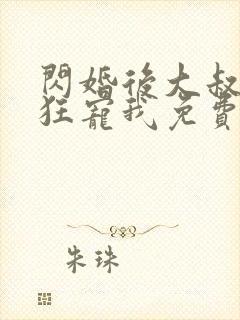 閃婚後大叔
狂寵我免費
朱珠